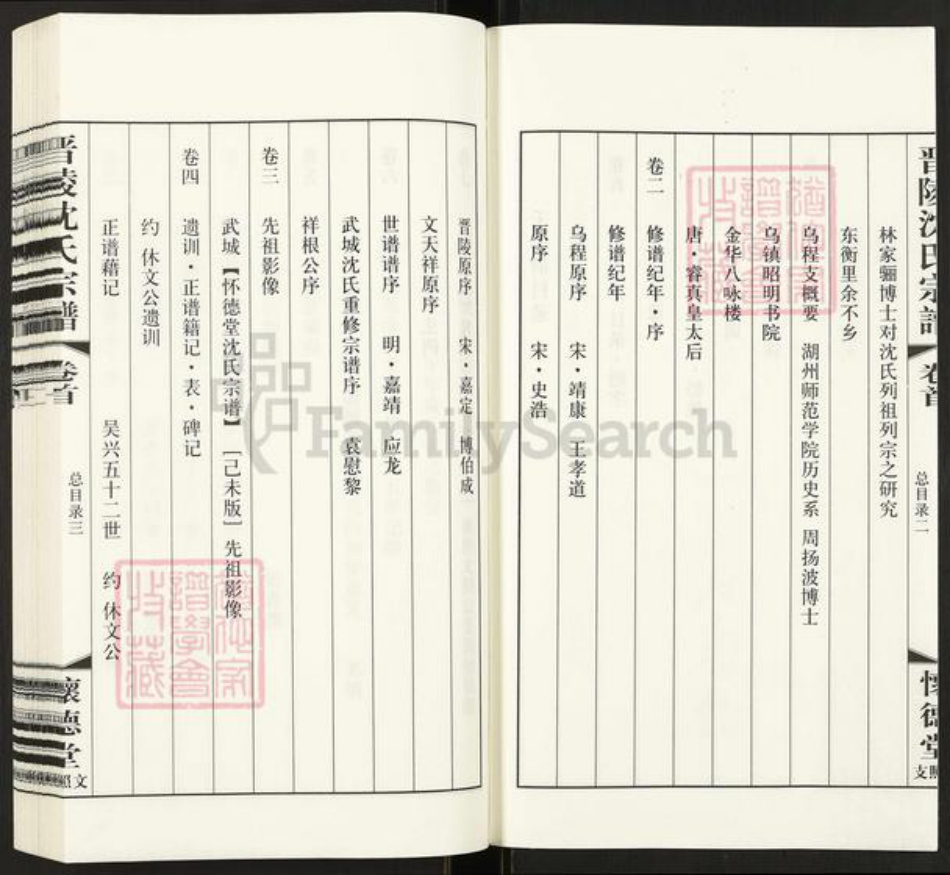 晋陵沈氏宗谱 卷首 总目录二 怀德堂 照支
林家骊博士对沈氏列祖列宗之研究
东衡里余不乡
乌程支概要 湖州师范学院历史系 周扬波博士
乌镇昭明书院
金华八咏楼
唐·睿真皇太后
卷二 修谱纪年·序
修谱纪年
乌程原序 宋·靖康 王孝道
原序 宋·史浩
晋陵原序 宋·嘉定 博伯成
文天祥原序
世谱谱序 明·嘉靖 应龙
武城沈氏重修宗谱序 袁慰黎
祥根公序
卷三 先祖影像
武城【怀德堂沈氏宗谱】[己未版]先祖影像
卷四 遗训·正谱籍记·表·碑记
约 休文公遗训
正谱藉记 吴兴五十二世 约 休文公
晋陵沈氏宗谱 卷首 总目录三 怀德堂
FamilySearch